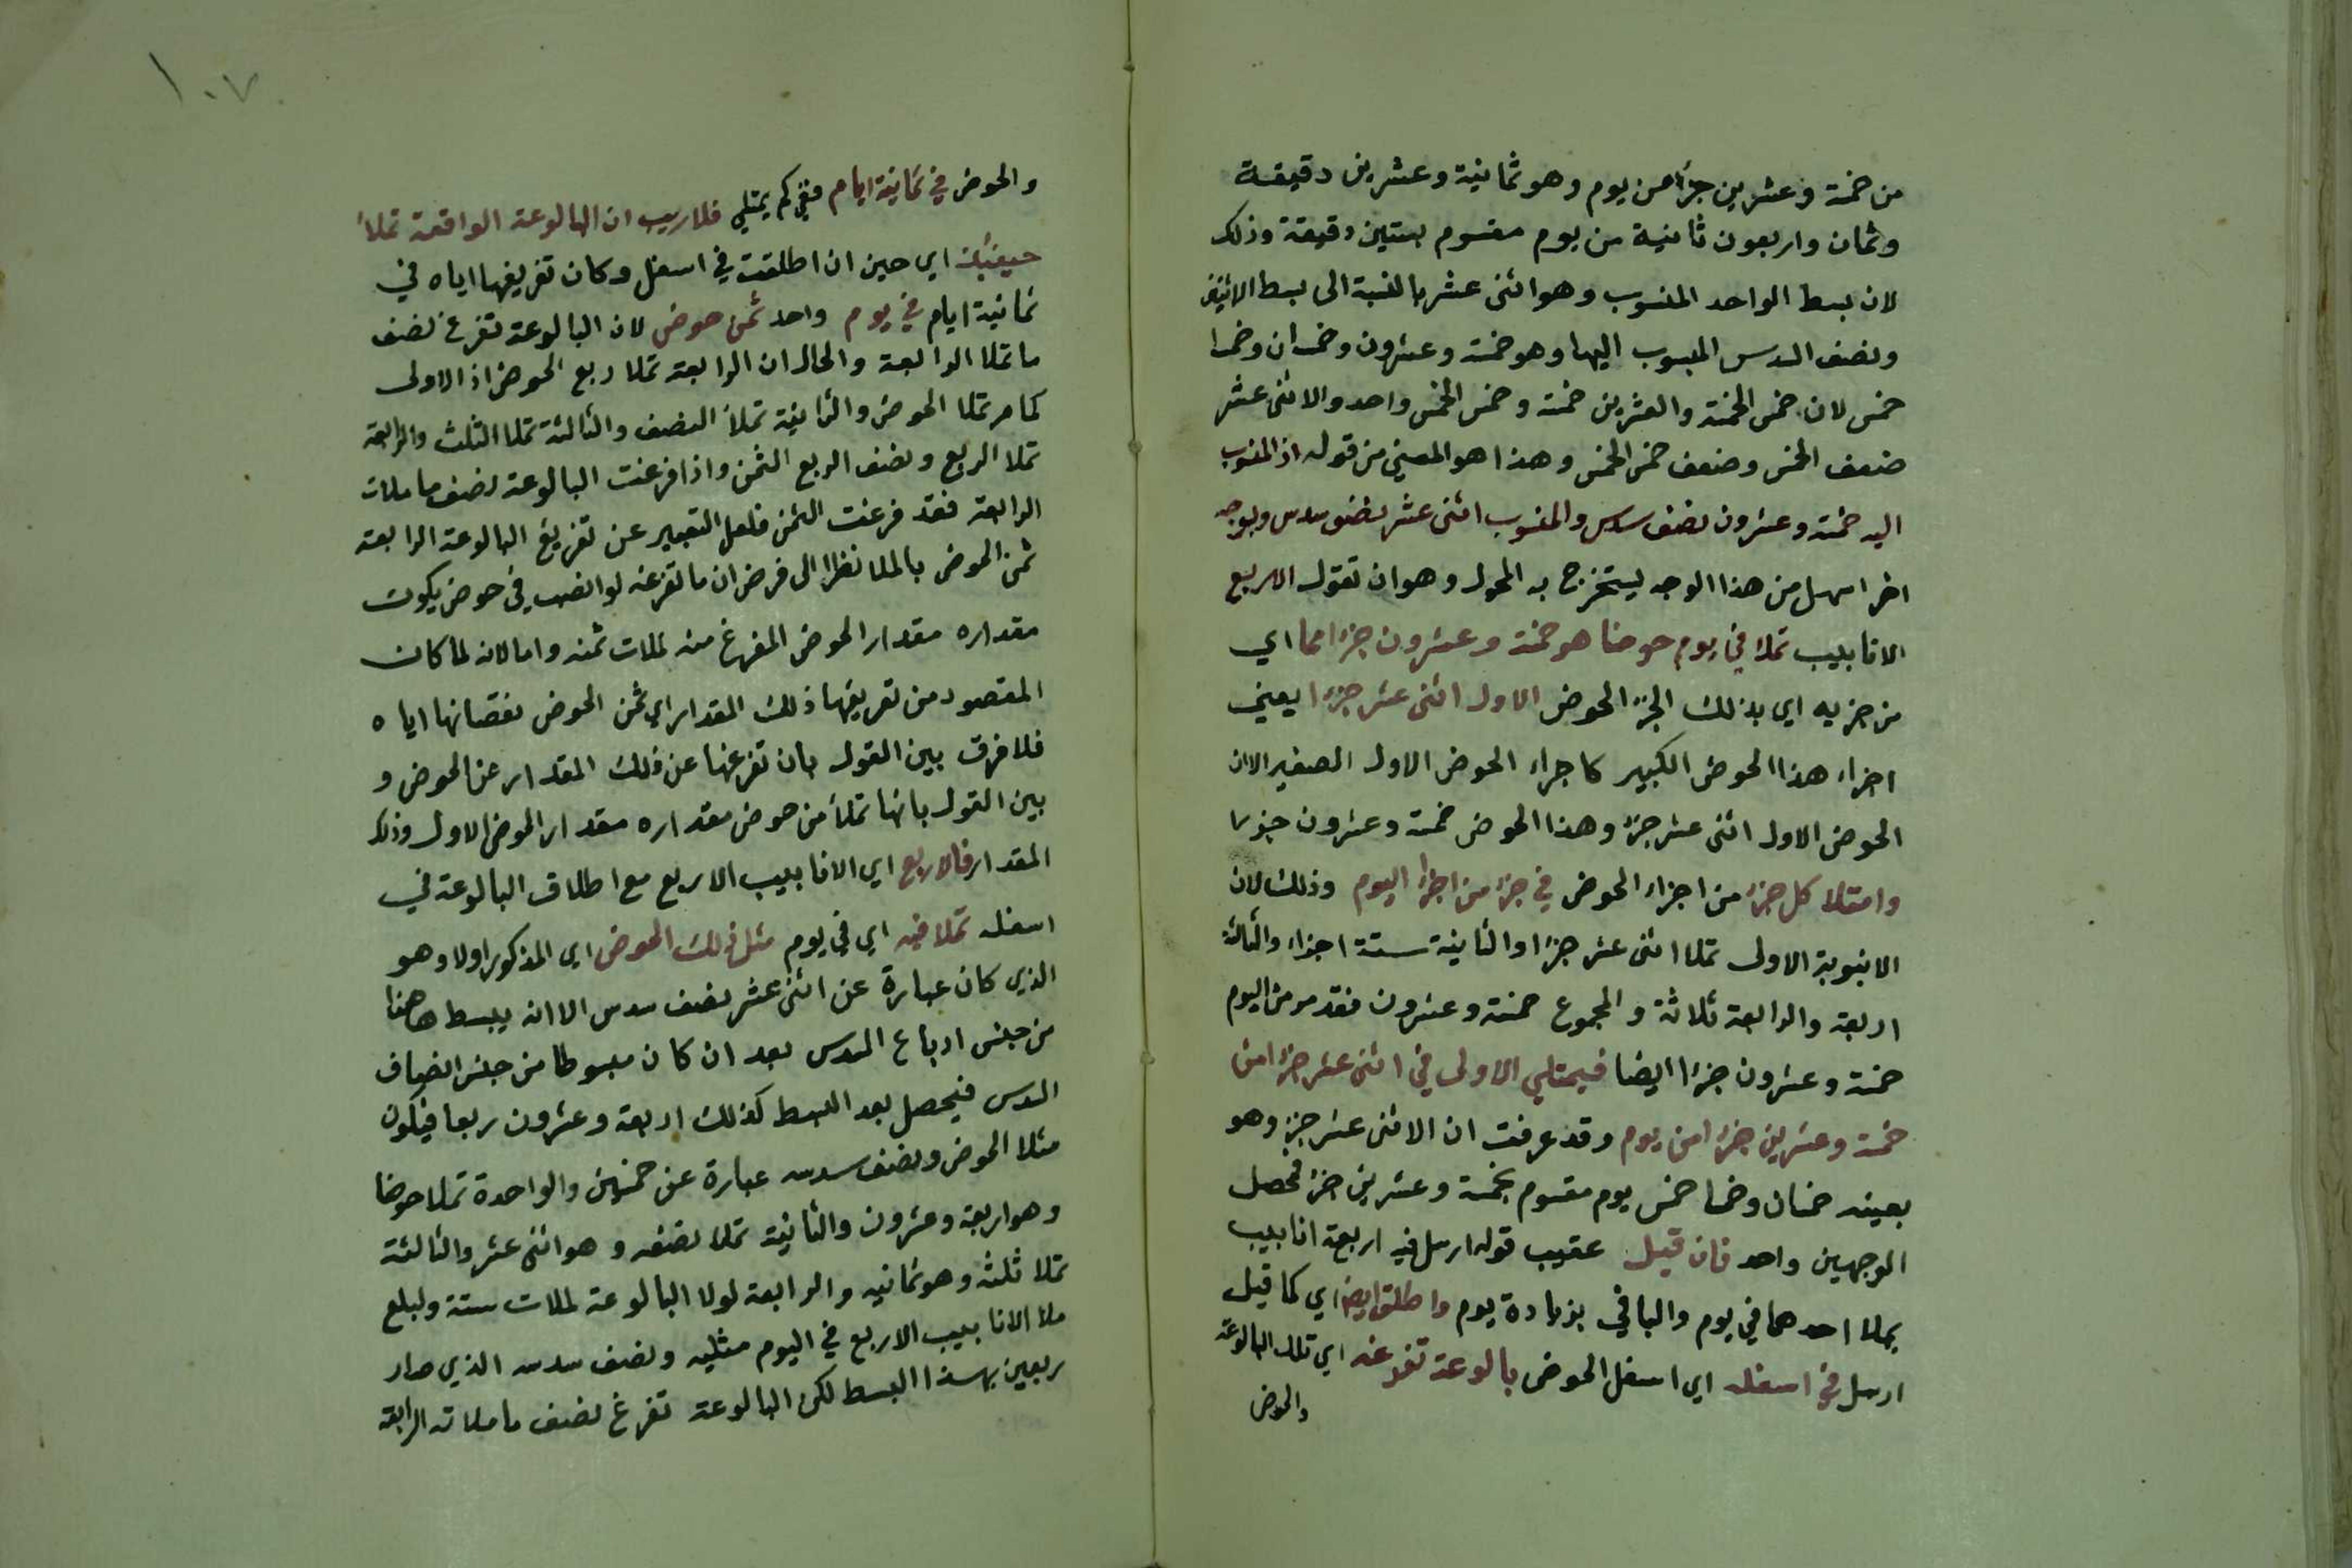 من خمسة وعشرين جزأ من يوم وهو ثمانية وعشرين دقيقة
وثمان واربعون ثانية من يوم مقسوم بستين دقيقة وذلك
لان بسط الواحد المنسوب وهو اثنى عشر بالنسبة الى بسط الاثنين
ونصف السدس المنسوب اليها وهو خمسة وعشرون وخمسان وخمسا
خمس لان خمس الخمسة والعشرين خمسة وخمس الخمس واحد والاثنى عشر
ضعف الخمس وضعف خمس الخمس وهذا هو المعني من قوله اذ المنسوب
اليه خمسة وعشرون نصف سدس والمنسوب اثنى عشر نصف سدس وبوجه
اخر اسهل من هذا الوجه يستخرج به المجهول وهو ان تقول الاربع
الانابيب تملأ في يوم حوضا هو خمسة وعشرون جزءا مما اي
من جزء به اي بذلك الجزء الحوض الاول اثنى عشر جزءا يعني
اجزاء هذا الحوض الكبير كاجزاء الحوض الاول الصغير الا ان
الحوض الاول اثنى عشر جزء وهذا الحوض خمسة وعشرون جزءا
وامتلا كل جزء من اجزاء الحوض في جزء من اجزاء اليوم وذلك لان
الانبوبة الاولى تملا اثنى عشر جزءا والثانية ستة اجزاء والثالثة
اربعة والرابعة ثلاثة والمجموع خمسة وعشرون فقد مر من اليوم
خمسة وعشرون جزءا ايضا فيمتلي الاولى في اثنى عشر جزءا من
خمسة وعشرين جزءا من يوم وقد عرفت ان الاثنى عشر جزء وهو
بعينه خمسان وخمسا خمس يوم مقسوم بخمسة وعشرين جزء فحصل
الوجهين واحد فان قيل عقيب قوله ارسل فيه اربعة انابيب
يملا احدهما في يوم والباقي بزيادة يوم واطلق ايضا اي كما قيل
ارسل في اسفله اي اسفل الحوض بالوعة تفرغه اي تلك البالوعة
والحوض
١٠٧
والحوض في ثمانية ايام ففي كم يمتلي فلا ريب ان البالوعة الواقعة تملأ
حينئذ اي حين ان اطلقت في اسفل وكان تفريغها اياه في
ثمانية ايام في يوم واحد ثمن حوض لان البالوعة تفرغ نصف
ما تملا الرابعة والحال ان الرابعة تملا ربع الحوض اذ الاولى
كما مر تملا الحوض والثانية تملأ النصف والثالثة تملا الثلث والرابعة
تملا الربع ونصف الربع الثمن واذا فرغت البالوعة نصف ما ملات
الرابعة فقد فرغت الثمن فلعل التعبير عن تفريغ البالوعة الرابعة
ثمن الحوض بالملا نظرا الى فرض ان ما تفرغه لو انصب في حوض يكون
مقداره مقدار الحوض المفرغ منه لملات ثمنه واما لانه لما كان
المقصود من تفريغها ذلك المقدار اي ثمن الحوض نقصانها اياه
فلا فرق بين القول بان تفرغها عن ذلك المقدار عن الحوض و
بين القول بانها تملأ من حوض مقداره مقدار الحوض الاول وذلك
المقدار فالاربع اي الانابيب الاربع مع اطلاق البالوعة في
اسفله تملا فيه اي في يوم مثل ذلك الحوض اي المذكور اولا وهو
الذي كان عبارة عن اثنى عشر نصف سدس الا انه يبسط هاهنا
من جنس ارباع السدس بعد ان كان مبسوطا من جنس انصاف
السدس فيحصل بعد البسط كذلك اربعة وعشرون ربعا فيكون
مثلا الحوض ونصف سدسه عبارة عن خمسين والواحدة تملا حوضا
وهو اربعة وعشرون والثانية تملا نصفه وهو اثنى عشر والثالثة
تملا ثلثه وهو ثمانيه والرابعة لولا البالوعة لملات ستة ولبلغ
ملا الانابيب الاربع في اليوم مثليه ونصف سدسه الذي صار
ربعين بهذا البسط لكن البالوعة تفرغ نصف ما ملاته الرابعة